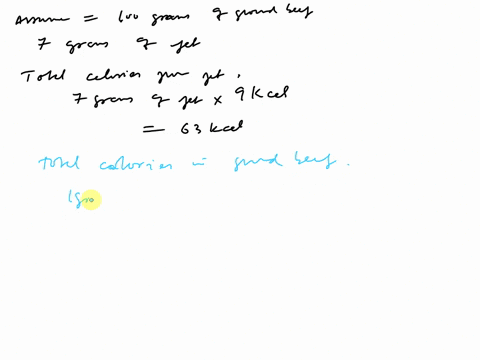 Assume = 100 grams of ground beef
7 grams of fat
Total calories from fat.
7 grams of fat × 9 Kcal
= 63 kcal
Total calories in ground beef.